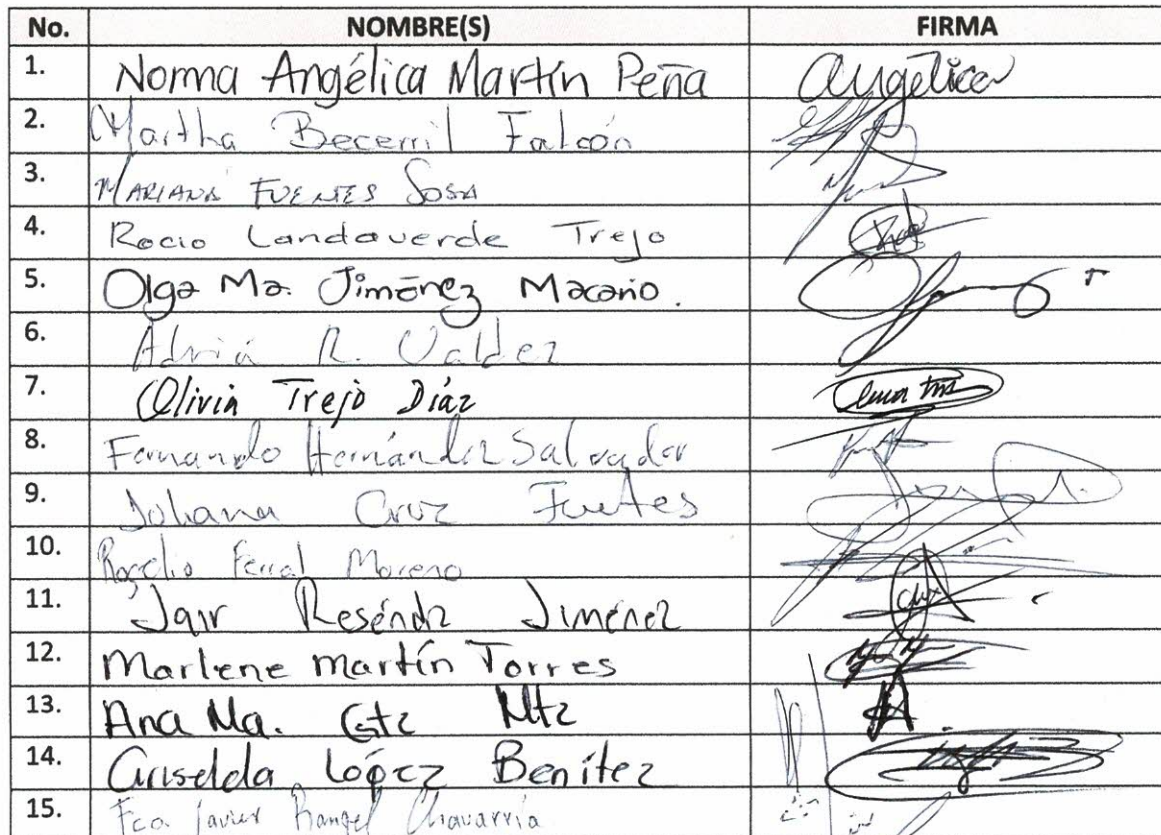 No. NOMBRE(S) FIRMA
1. Norma Angélica Martín Peña Angélica
2. Martha Becerril Falcón
3. MARIANA FUENTES SOSA
4. Rocio Landaverde Trejo
5. Olga Ma. Jiménez Macario.
6. R. Valdez
7. Olivia Trejo Díaz
8. Fernando Hernández Salvador
9. Johana Cruz Fuetes
10. Rogelio Ferral Moreno
11. Jair Reséndiz Jiménez
12. Marlene Martín Torres
13. Ana Ma. Gtz Mtz
14. Griselda López Benítez
15. Fco. Javier Rangel Chavarría